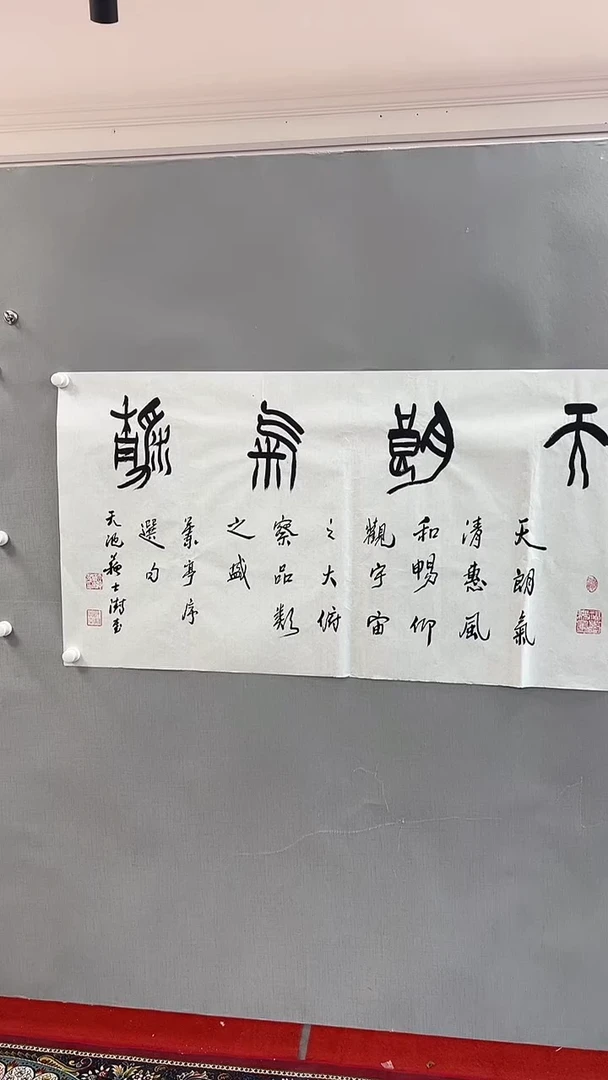 天朗氣
天朗氣
清惠風
和暢仰
觀宇宙
之大俯
察品類
之盛
蘭亭序
選句
天池蘇士澍書